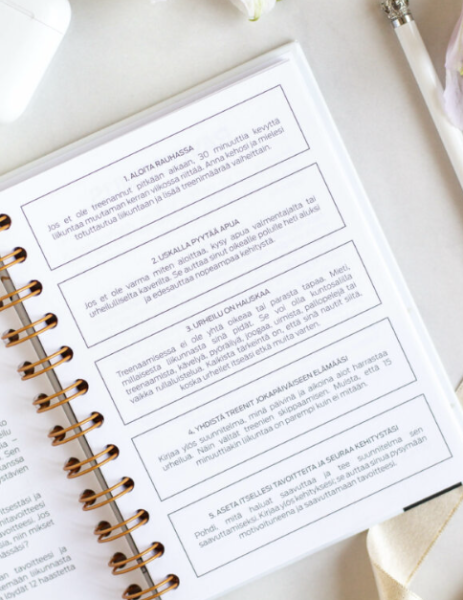 1. ALOITA RAUHASSA
Jos et ole treenannut pitkään aikaan, 30 minuuttia kevyttä
liikuntaa muutaman kerran viikossa riittää. Anna kehosi ja mielesi
totuttautua liikuntaan ja lisää treenimäärää vaiheittain.
2. USKALLA PYYTÄÄ APUA
Jos et ole varma miten aloittaa, kysy apua valmentajalta tai
urheilulliselta kaverilta. Se auttaa sinut oikealle polulle heti aluksi
ja edesauttaa nopeampaa kehitystä.
3. URHEILU ON HAUSKAA
Treenaamisessa ei ole yhtä oikeaa tai parasta tapaa. Mieti,
millaisesta liikunnasta sinä pidät. Se voi olla kuntosalilla
treenaamista, kävelyä, pyöräilyä, joogaa, uimista, pallopelejä tai
vaikka rullaluistelua. Kaikista tärkeintä on, että sinä nautit siitä,
koska urheilet itseäsi etkä muita varten.
4. YHDISTÄ TREENIT JOKAPÄIVÄISEEN ELÄMÄÄSI
Kirjaa ylös suunnitelma, minä päivinä ja aikoina aiot harrastaa
urheilua. Näin vältät treenien skippaamisen. Muista, että 15
minuuttiakin liikuntaa on parempi kuin ei mitään.
5. ASETA ITSELLESI TAVOITTEITA JA SEURAA KEHITYSTÄSI
Pohdi, mitä haluat saavuttaa ja tee suunnitelma sen
saavuttamiseksi. Kirjaa ylös kehityksesi, se auttaa sinua pysymään
motivoituneena ja saavuttamaan tavoitteesi.